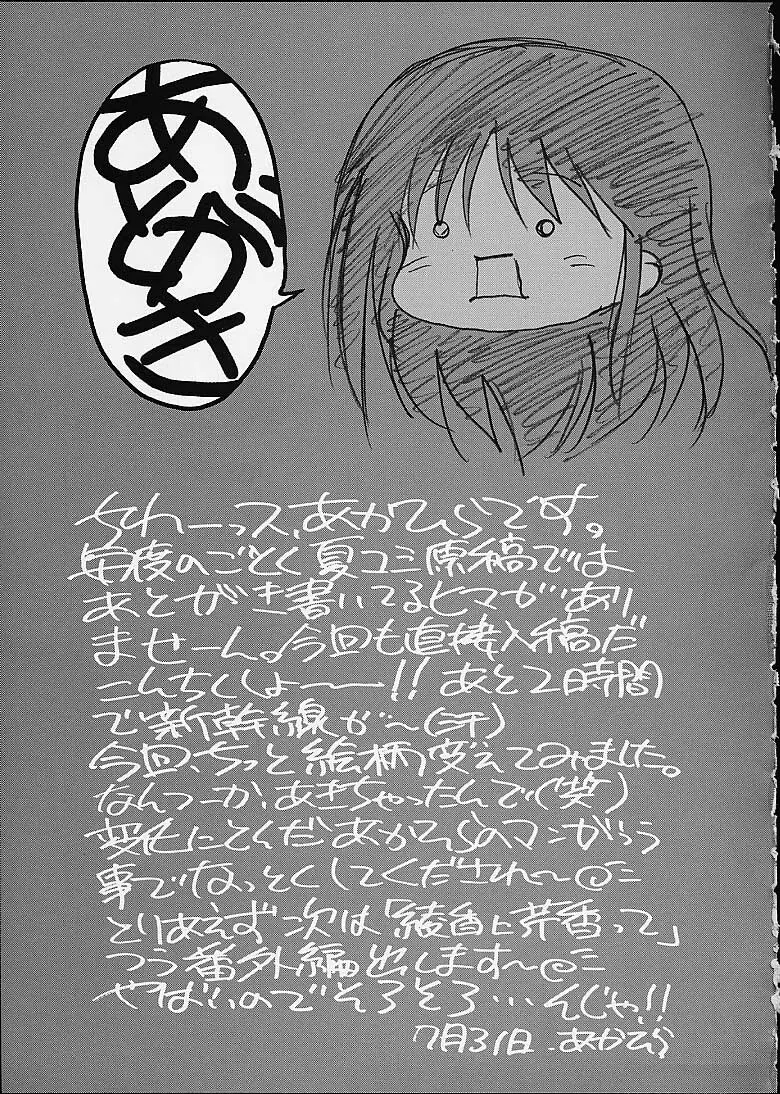 あとがき
ちわーっス、あかひらです。
毎度のごとく夏コミ原稿では
あとがき書いてるヒマがあり
ませーん。今回も直接入稿だ
こんちくしょーーー!! あと2時間
で新幹線が〜(汗)
今回、ちっと絵柄変えてみました。
なんつーか、あきちゃったんで(笑)
変化にとんだあかひらのマンガっつう
事でなっとくしてくだされ〜
とりあえず次は「綾香と芹香って」
つう番外編出します〜
やばいのでそろそろ…んじゃ!!
7月31日 あかひら